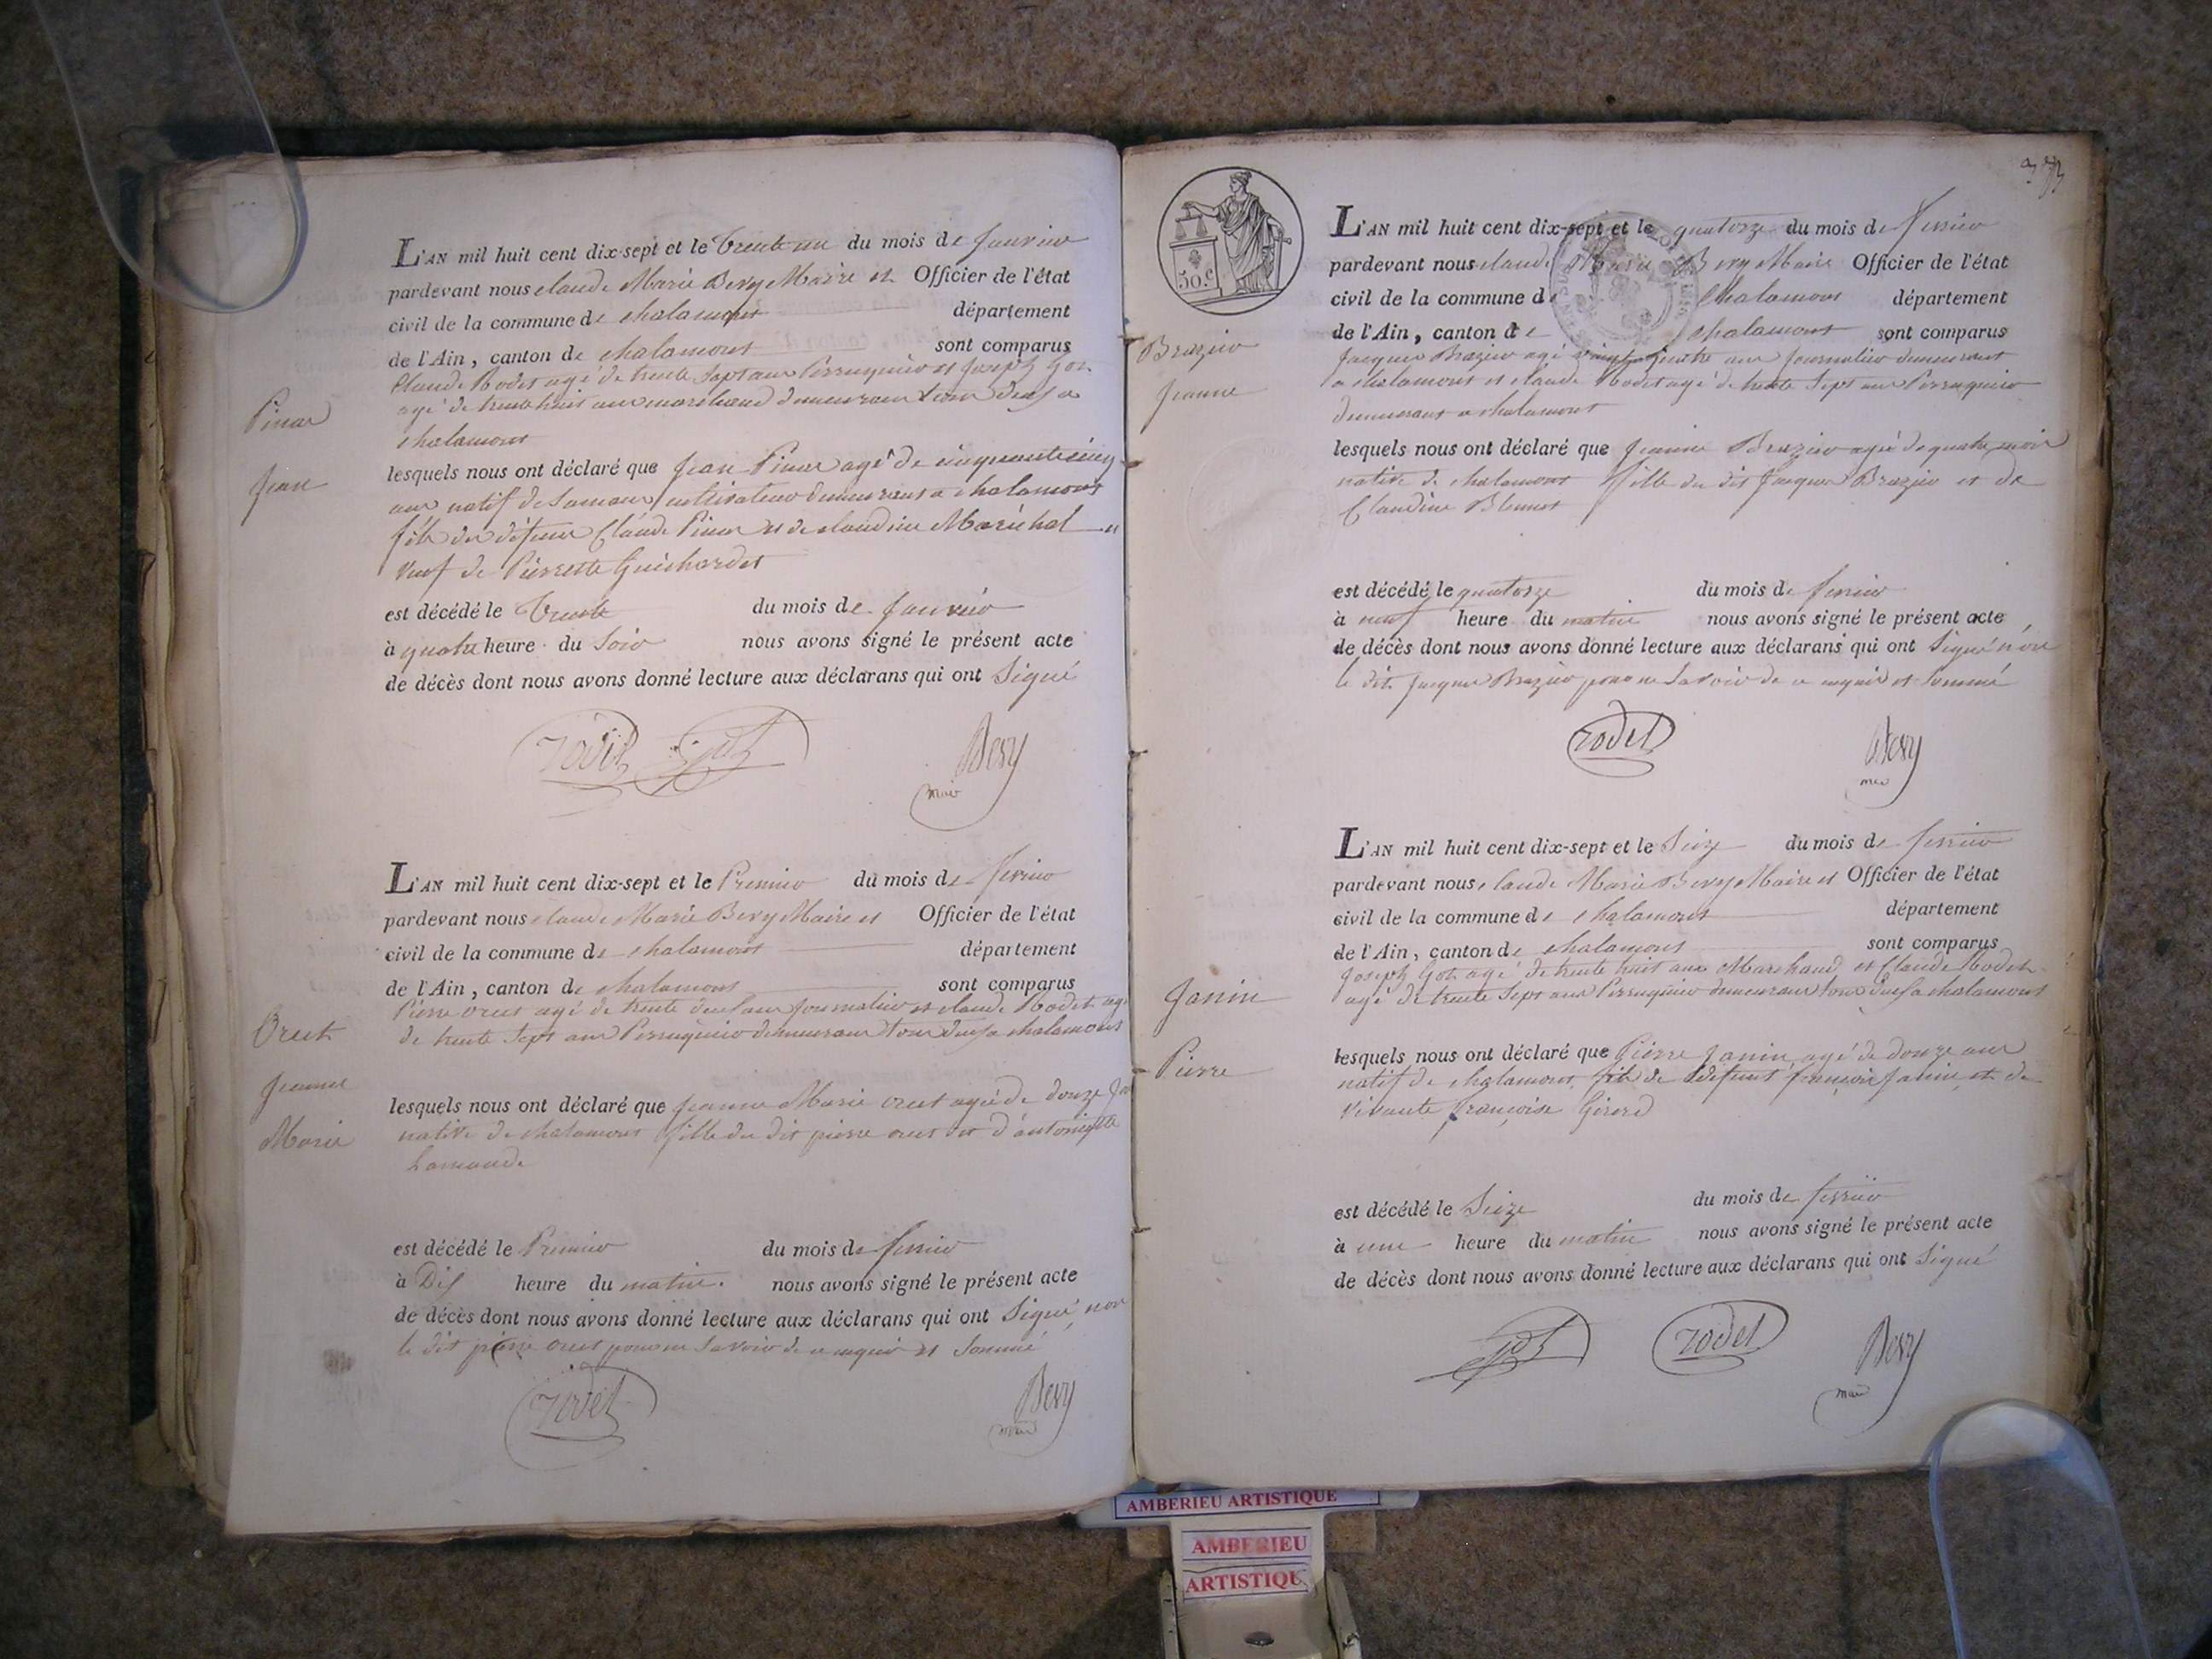 L'AN mil huit cent dix-sept et le Trente un du mois de Janvier
pardevant nous claude Marie Bevy Maire et Officier de l'état
civil de la commune de chalamont département
de l'Ain, canton de chalamont sont comparus
Claude Rodet agé de trente Sept ans Perruquier et Joseph Got
agé de trente huit ans marchand demeurant tous deux a
chalamont
Pinar
Jean
lesquels nous ont déclaré que Jean Pinar agé de cinquante cinq
ans natif de cultivateur demeurant a chalamont
fils de défunt Claude Pinar et de claudine Maréchal
veuf de Pierrette Guichardet
est décédé le Trente du mois de Janvier
à quatre heure du Soir nous avons signé le présent acte
de décès dont nous avons donné lecture aux déclarans qui ont Signé
rodet Got Bevy
maire
L'AN mil huit cent dix-sept et le Premier du mois de fevrier
pardevant nous claude Marie Bevy Maire et Officier de l'état
civil de la commune de chalamont département
de l'Ain, canton de chalamont sont comparus
Pierre oret agé de trente deux ans journalier et claude Rodet agé
de trente Sept ans Perruquier demeurant tous deux a chalamont
Oret
Jeanne
Marie
lesquels nous ont déclaré que Jeanne Marie oret agée de douze
native de chalamont fille du dit pierre oret et d'antoinette
est décédé le Premier du mois de fevrier
à Dix heure du matin. nous avons signé le présent acte
de décès dont nous avons donné lecture aux déclarans qui ont Signé, non
le dit pierre oret pour ne Savoir de ce enquis et Sommé
rodet Bevy
maire
50 c
L'AN mil huit cent dix-sept et le quatorze du mois de fevrier
pardevant nous claude Marie Bevy Maire Officier de l'état
civil de la commune de Chalamont département
de l'Ain, canton de chalamont sont comparus
Jacques Brazier agé vingt quatre ans journalier demeurant
a chalamont et claude Rodet agé de trente Sept ans Perruquier
demeurant a chalamont
Brazier
Jeanne
lesquels nous ont déclaré que Jeanne Brazier agée de quatre mois
native de chalamont fille du dit Jacques Brazier et de
Claudine
est décédé le quatorze du mois de fevrier
à neuf heure du matin nous avons signé le présent acte
de décès dont nous avons donné lecture aux déclarans qui ont Signé non
le dit Jacques Brazier pour ne Savoir de ce enquis et Sommé
rodet Bevy
maire
L'AN mil huit cent dix-sept et le Seize du mois de fevrier
pardevant nous claude Marie Bevy Maire et Officier de l'état
civil de la commune de chalamont département
de l'Ain, canton de chalamont sont comparus
Joseph Got agé de trente huit ans Marchand et Claude Rodet
agé de trente Sept ans Perruquier demeurant tous deux a chalamont
Janin
Pierre
lesquels nous ont déclaré que Pierre Janin agé de douze ans
natif de chalamont fils de défunt françois Janin et de
vivante françoise Girerd
est décédé le Seize du mois de fevrier
à une heure du matin nous avons signé le présent acte
de décès dont nous avons donné lecture aux déclarans qui ont Signé
Got rodet Bevy
maire
AMBERIEU ARTISTIQUE
AMBERIEU
ARTISTIQU